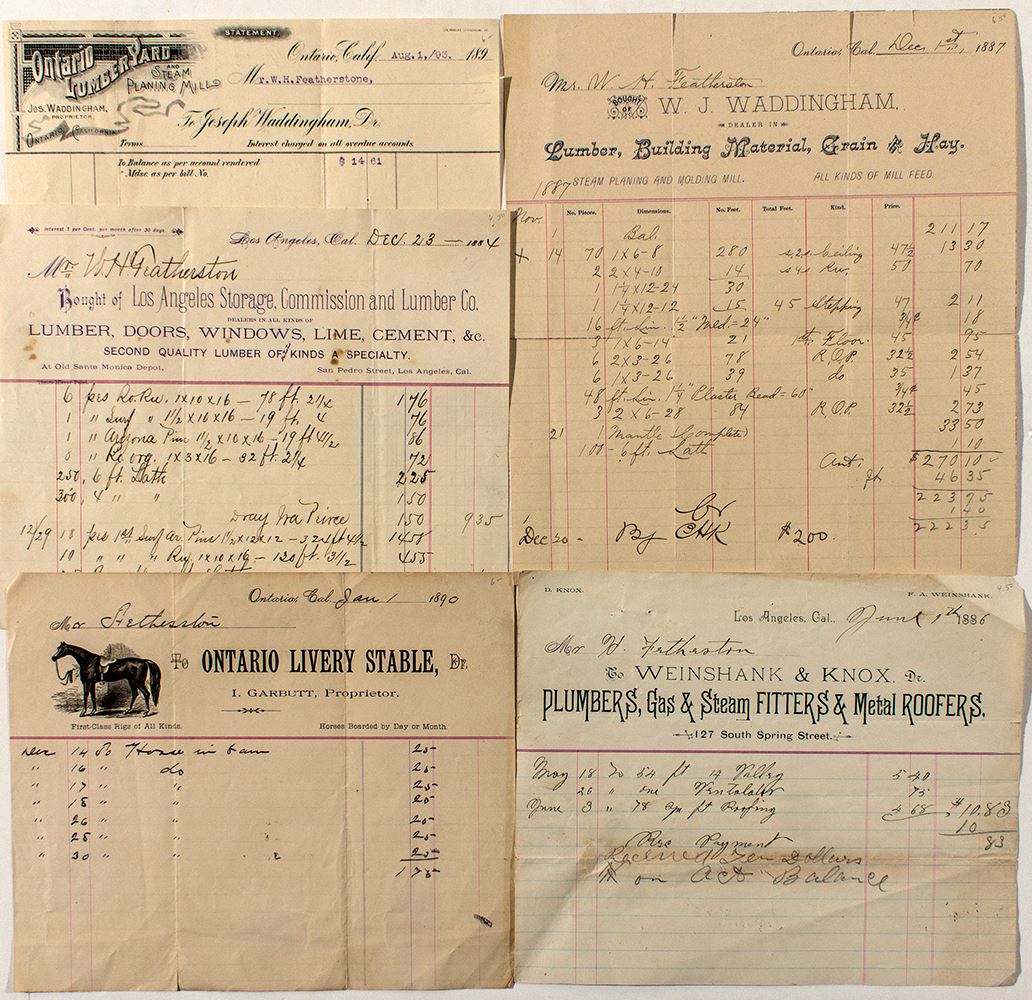 STATEMENT.
Ontario, Calif. Aug. 1, /93. 189
Ontario
Lumber Yard
and
Steam
Planing Mill
Jos. Waddingham,
Proprietor.
Ontario, California.
Mr. W.H. Featherstone,
To Joseph Waddingham, Dr.
Terms Interest charged on all overdue accounts.
To Balance as per account rendered $ 14 61
" Mdse. as per bill No.
Ontario, Cal. Dec. 1st, 1887
Mr. W. H. Featherston
BOUGHT OF W. J. WADDINGHAM,
DEALER IN
Lumber, Building Material, Grain & Hay.
1887 STEAM PLANING AND MOLDING MILL. ALL KINDS OF MILL FEED.
No. Pieces. Dimensions. No. Feet. Total Feet. Kind. Price.
Nov 1 Bal. 211 17
x 14 70 1x6-8 280 s2s Ceiling 47½ 13 30
2 2x4-10 14 s4s Rw. 50 70
1 1¼x12-24 30
1 1¼x12-12 15 45 Stepping 47 2 11
16 ft. Lin. 1½" Med = 24" ¾¢ 18
3 1x6-14 21 1st Floor. 45 95
6 2x3-26 78 R.O.P. 32½ 2 54
6 1x3-26 39 do 35 1 37
48 ft. Lin. 1¼" Plaster Bead = 60" ¾¢ 45
3 2x6-28 84 R.O.P. 32½ 2 73
21 1 Mantle (Complete) 33 50
100 - 6 ft. Lath 1 10
Amt. $270 10
46 35
223 75
1 40
222 35
Cr
Dec 20 - By CHK $200.
Interest 1 per Cent. per month after 30 days.
Los Angeles, Cal. Dec. 23 — 1884
Mr. W. H. Featherston
Bought of Los Angeles Storage, Commission and Lumber Co.
DEALERS IN ALL KINDS OF
LUMBER, DOORS, WINDOWS, LIME, CEMENT, &c.
SECOND QUALITY LUMBER OF all KINDS A SPECIALTY.
At Old Santa Monica Depot, San Pedro Street, Los Angeles, Cal.
6 pcs Ro. Rw. 1x10x16 — 78 ft. 2¼ 1 76
1 " Surf " 1½x10x16 — 19 ft. 4 76
1 " Arizona Pine 1½x10x16 — 19 ft 4½ 86
8 " Re Org. 1x3x16 — 32 ft. 2¼ 72
250, 6 ft. Lath 2 25
300, 4 " " 1 50
Dray Ira Pierce 1 50 9 35
12/29 18 pcs 1st Surf Ar. Pine 1½x12x12 — 324 ft 4½ 14 58
10 " " " Rw, 1x10x16 — 130 ft. 3½ 4 55
Ontario, Cal. Jan 1 1890
Mr Fetherston
To ONTARIO LIVERY STABLE, Dr.
I. GARBUTT, Proprietor.
First-Class Rigs of All Kinds. Horses Boarded by Day or Month.
Dec 14 To Horse in barn 25
" 16 " do 25
" 17 " " 25
" 18 " " 25
" 26 " " 25
" 28 " " 25
" 30 " " 25
1 75
D. KNOX. F. A. WEINSHANK.
Los Angeles, Cal., June 9th 1886
Mr H. Fetherston
To WEINSHANK & KNOX. Dr.
PLUMBERS, Gas & Steam FITTERS & Metal ROOFERS.
127 South Spring Street.
May 18 To 54 ft 14 Valley 5 40
26 " one Ventilator 75
June 3 " 78 sq ft Roofing 4 68 $10.83
10
83
Rec Payment
Received Ten Dollars
on Act Balance